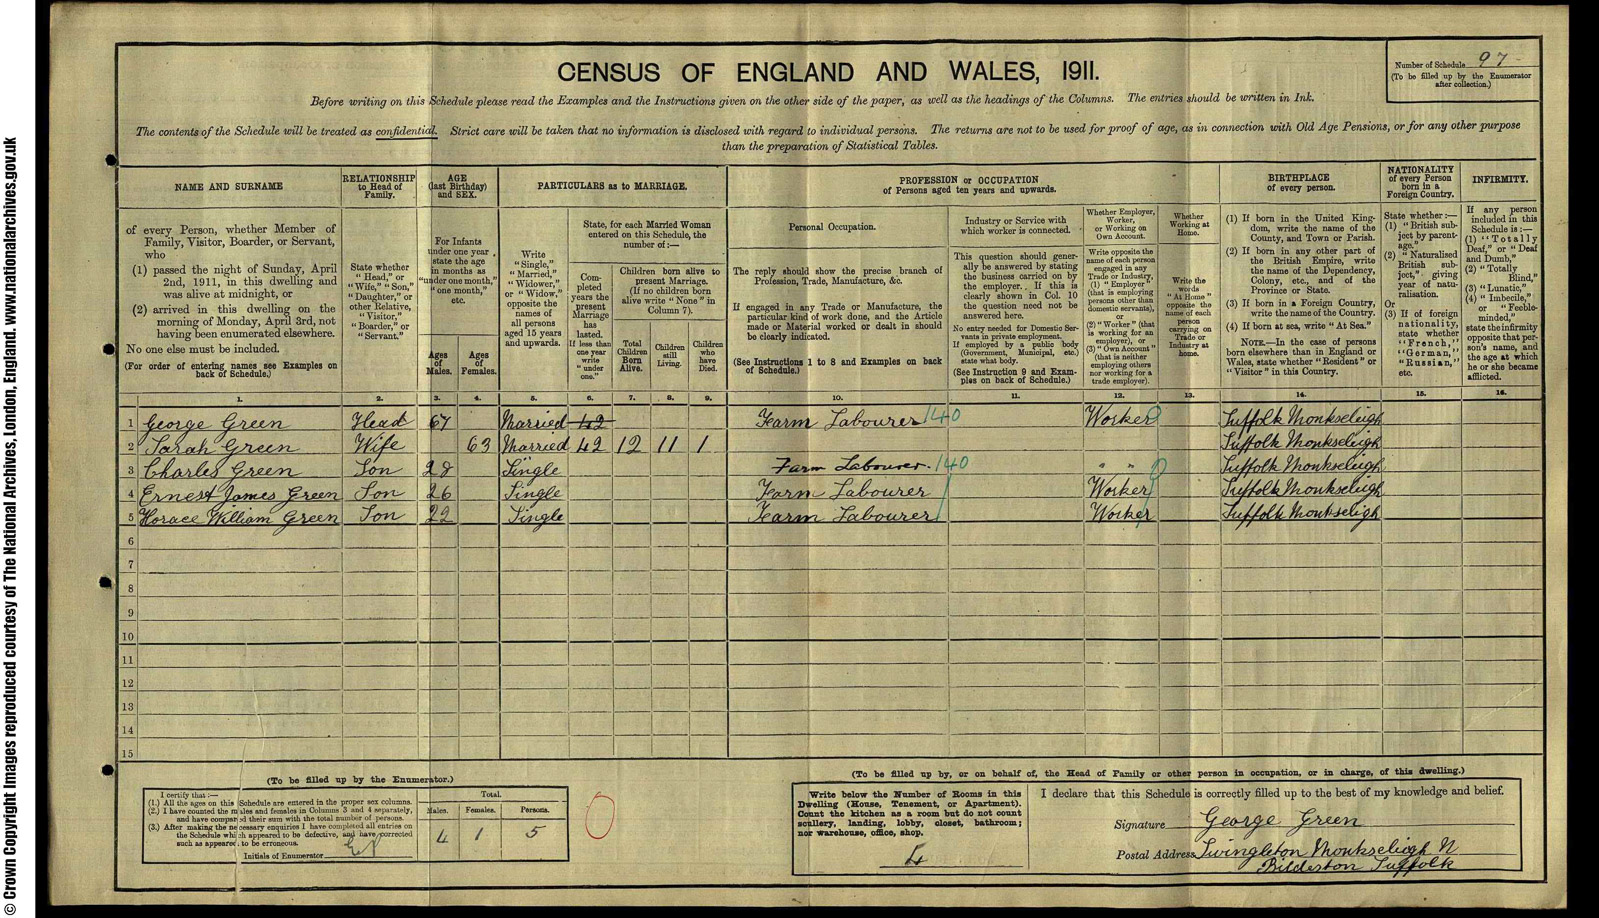 © Crown Copyright Images reproduced courtesy of The National Archives, London, England. www.nationalarchives.gov.uk
CENSUS OF ENGLAND AND WALES, 1911.
Number of Schedule 97
(To be filled up by the Enumerator
after collection.)
Before writing on this Schedule please read the Examples and the Instructions given on the other side of the paper, as well as the headings of the Columns. The entries should be written in Ink.
The contents of the Schedule will be treated as confidential. Strict care will be taken that no information is disclosed with regard to individual persons. The returns are not to be used for proof of age, as in connection with Old Age Pensions, or for any other purpose
than the preparation of Statistical Tables.
NAME AND SURNAME
of every Person, whether Member of
Family, Visitor, Boarder, or Servant,
who
(1) passed the night of Sunday, April
2nd, 1911, in this dwelling and
was alive at midnight, or
(2) arrived in this dwelling on the
morning of Monday, April 3rd, not
having been enumerated elsewhere.
No one else must be included.
(For order of entering names see Examples on
back of Schedule.)
RELATIONSHIP
to Head of
Family.
State whether
"Head," or
"Wife," "Son,"
"Daughter," or
other Relative,
"Visitor,"
"Boarder," or
"Servant."
AGE
(last Birthday)
and SEX.
For Infants
under one year
state the age
in months as
"under one month,"
"one month,"
etc.
Ages
of
Males.
Ages
of
Females.
PARTICULARS as to MARRIAGE.
Write
"Single,"
"Married,"
"Widower,"
or "Widow,"
opposite the
names of
all persons
aged 15 years
and upwards.
State, for each Married Woman
entered on this Schedule, the
number of:—
Com-
pleted
years the
present
Marriage
has
lasted.
If less than
one year
write
"under
one."
Children born alive to
present Marriage.
(If no children born
alive write "None" in
Column 7).
Total
Children
Born
Alive.
Children
still
Living.
Children
who
have
Died.
PROFESSION or OCCUPATION
of Persons aged ten years and upwards.
Personal Occupation.
The reply should show the precise branch of
Profession, Trade, Manufacture, &c.
If engaged in any Trade or Manufacture, the
particular kind of work done, and the Article
made or Material worked or dealt in should
be clearly indicated.
(See Instructions 1 to 8 and Examples on back
of Schedule.)
Industry or Service with
which worker is connected.
This question should gener-
ally be answered by stating
the business carried on by
the employer. If this is
clearly shown in Col. 10
the question need not be
answered here.
No entry needed for Domestic Ser-
vants in private employment.
If employed by a public body
(Government, Municipal, etc.)
state what body.
(See Instruction 9 and Exam-
ples on back of Schedule.)
Whether Employer,
Worker,
or Working on
Own Account.
Write opposite the
name of each person
engaged in any
Trade or Industry,
(1) "Employer"
(that is employing
persons other than
domestic servants),
or
(2) "Worker" (that
is working for an
employer), or
(3) "Own Account"
(that is neither
employing others
nor working for a
trade employer).
Whether
Working at
Home.
Write the
words
"At Home"
opposite the
name of each
person
carrying on
Trade or
Industry at
home.
BIRTHPLACE
of every person.
(1) If born in the United King-
dom, write the name of the
County, and Town or Parish.
(2) If born in any other part of
the British Empire, write
the name of the Dependency,
Colony, etc., and of the
Province or State.
(3) If born in a Foreign Country,
write the name of the Country.
(4) If born at sea, write "At Sea."
NOTE.—In the case of persons
born elsewhere than in England or
Wales, state whether "Resident" or
"Visitor" in this Country.
NATIONALITY
of every Person
born in a
Foreign Country.
State whether:—
(1) "British sub-
ject by parent-
age."
(2) "Naturalised
British sub-
ject," giving
year of natu-
ralisation.
Or
(3) If of foreign
nationality,
state whether
"French,"
"German,"
"Russian,"
etc.
INFIRMITY.
If any person
included in this
Schedule is:—
(1) "Totally
Deaf," or "Deaf
and Dumb,"
(2) "Totally
Blind,"
(3) "Lunatic,"
(4) "Imbecile,"
or "Feeble-
minded,"
state the infirmity
opposite that per-
son's name, and
the age at which
he or she became
afflicted.
1. 2. 3. 4. 5. 6. 7. 8. 9. 10. 11. 12. 13. 14. 15. 16.
1 George Green Head 67 Married 42 Farm Labourer 140 Worker Suffolk Monkseleigh
2 Sarah Green Wife 63 Married 42 12 11 1 Suffolk Monkseleigh
3 Charles Green Son 28 Single Farm Labourer 140 " " Suffolk Monkseleigh
4 Ernest James Green Son 26 Single Farm Labourer Worker Suffolk Monkseleigh
5 Horace William Green Son 22 Single Farm Labourer Worker Suffolk Monkseligh
6
7
8
9
10
11
12
13
14
15
(To be filled up by the Enumerator.)
I certify that:—
(1.) All the ages on this Schedule are entered in the proper sex columns.
(2.) I have counted the males and females in Columns 3 and 4 separately,
and have compared their sum with the total number of persons.
(3.) After making the necessary enquiries I have completed all entries on
the Schedule which appeared to be defective, and have corrected
such as appeared to be erroneous.
Initials of Enumerator
Total.
Males. Females. Persons.
4 1 5
(To be filled up by, or on behalf of, the Head of Family or other person in occupation, or in charge, of this dwelling.)
Write below the Number of Rooms in this
Dwelling (House, Tenement, or Apartment).
Count the kitchen as a room but do not count
scullery, landing, lobby, closet, bathroom;
nor warehouse, office, shop.
4
I declare that this Schedule is correctly filled up to the best of my knowledge and belief.
Signature George Green
Postal Address Swingleton Monkseleigh N
Bilderston Suffolk